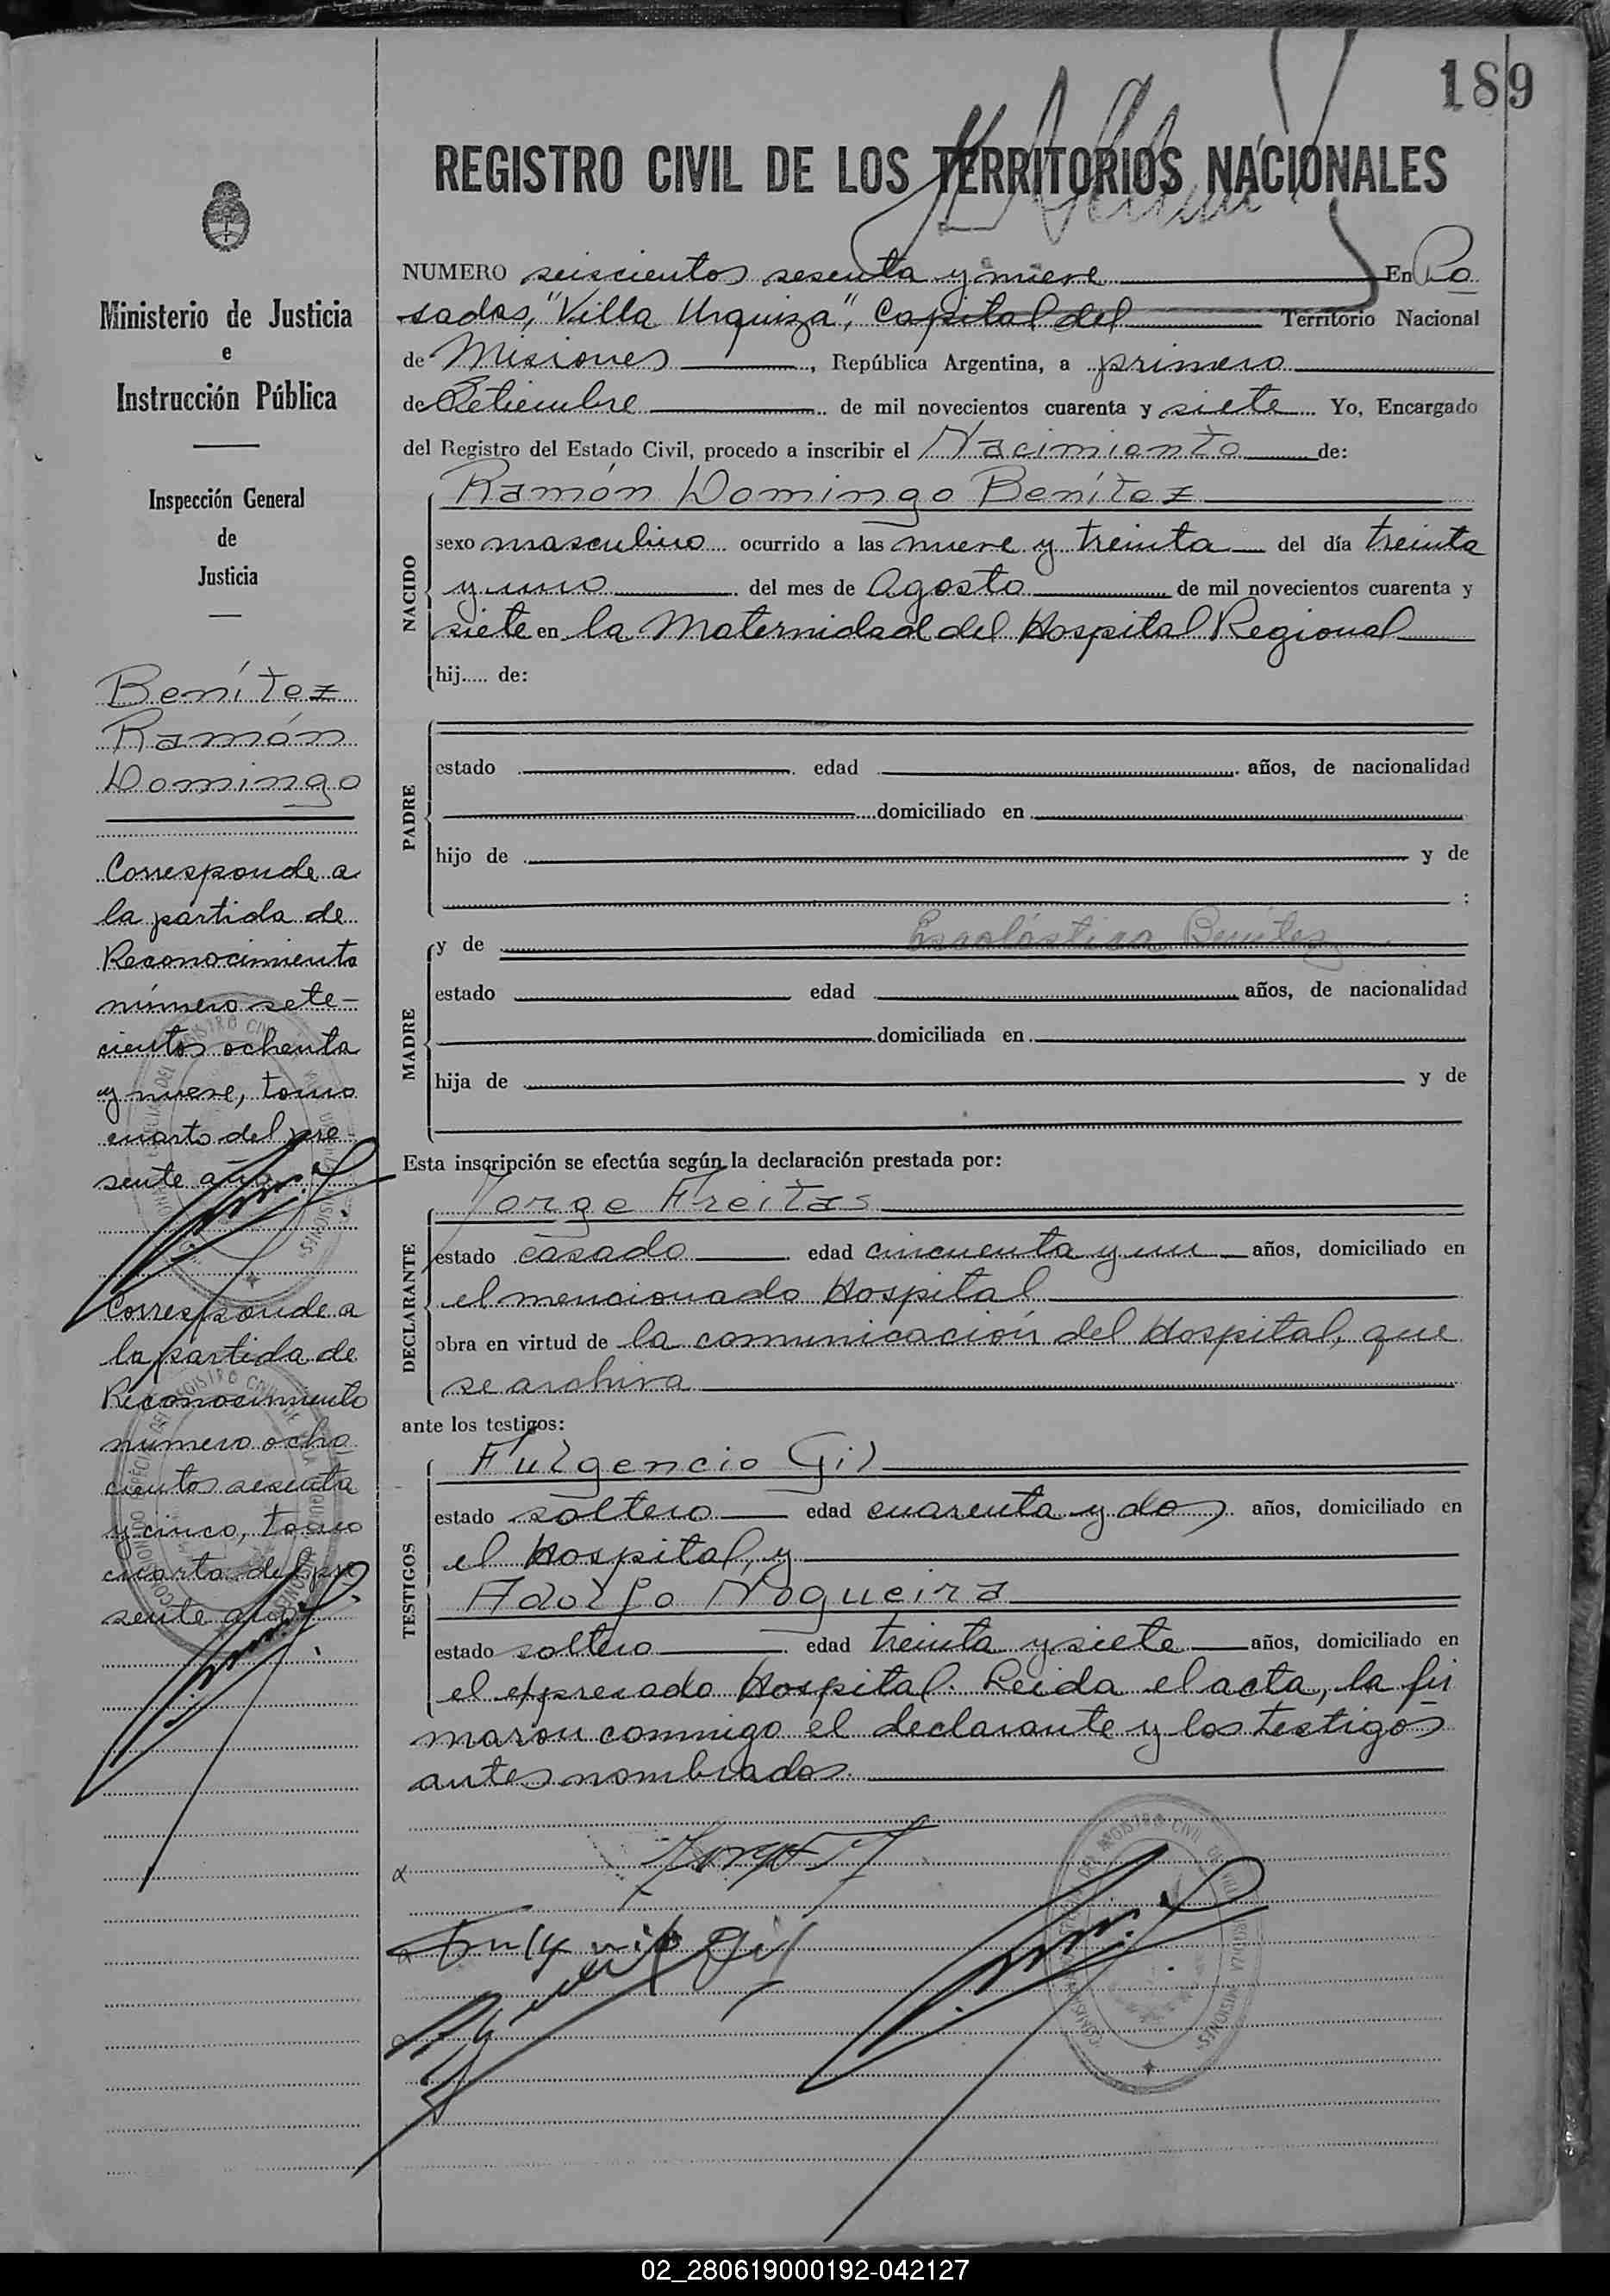 189
REGISTRO CIVIL DE LOS TERRITORIOS NACIONALES
Ministerio de Justicia
e
Instrucción Pública
Inspección General
de
Justicia
Benítez
Ramón
Domingo
Corresponde a
la partida de
Reconocimiento
número sete-
cientos ochenta
y nueve, tomo
cuarto del pre
sente año
Corresponde a
la partida de
Reconocimiento
número ocho
cientos sesenta
y cinco, tomo
cuarto del pre
sente año
NUMERO seiscientos sesenta y nueve En Po
sadas, "Villa Urquiza", Capital del Territorio Nacional
de Misiones, República Argentina, a primero
de Setiembre de mil novecientos cuarenta y siete Yo, Encargado
del Registro del Estado Civil, procedo a inscribir el Nacimiento de:
NACIDO
Ramón Domingo Benítez
sexo masculino ocurrido a las nueve y treinta del día treinta
y uno del mes de Agosto de mil novecientos cuarenta y
siete en la Maternidad del Hospital Regional
hij..... de:
PADRE
estado edad años, de nacionalidad
domiciliado en
hijo de y de
:
MADRE
y de Escolástica Benitez
estado edad años, de nacionalidad
domiciliada en
hija de y de
Esta inscripción se efectúa según la declaración prestada por:
DECLARANTE
Jorge Freitas
estado casado edad cincuenta y un años, domiciliado en
el mencionado Hospital
obra en virtud de la comunicación del Hospital, que
se archiva
ante los testigos:
TESTIGOS
Fulgencio Gil
estado soltero edad cuarenta y dos años, domiciliado en
el Hospital, y
Adolfo Nogueira
estado soltero edad treinta y siete años, domiciliado en
el expresado Hospital. Leida el acta, la fir
maron conmigo el declarante y los testigos
antes nombrados.
02_280619000192-042127